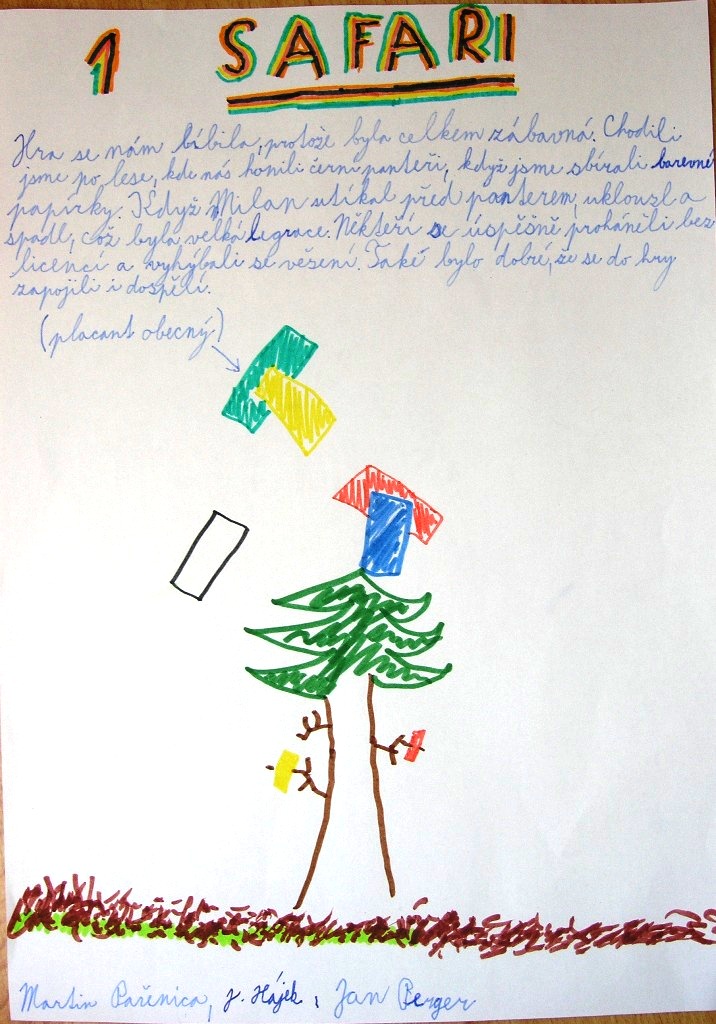 1 SAFARI
Hra se nám líbila, protože byla celkem zábavná. Chodili
jsme po lese, kde nás honili černí panteři, když jsme sbírali barevné
papírky. Když Milan utíkal před panterem, uklouzl a
spadl, což byla velká legrace. Někteří se úspěšně proháněli bez
licencí a vyhýbali se vězení. Také bylo dobré, že se do hry
zapojili i dospělí.
(placant obecný)
Martin Pařenica, J. Hájek, Jan Berger